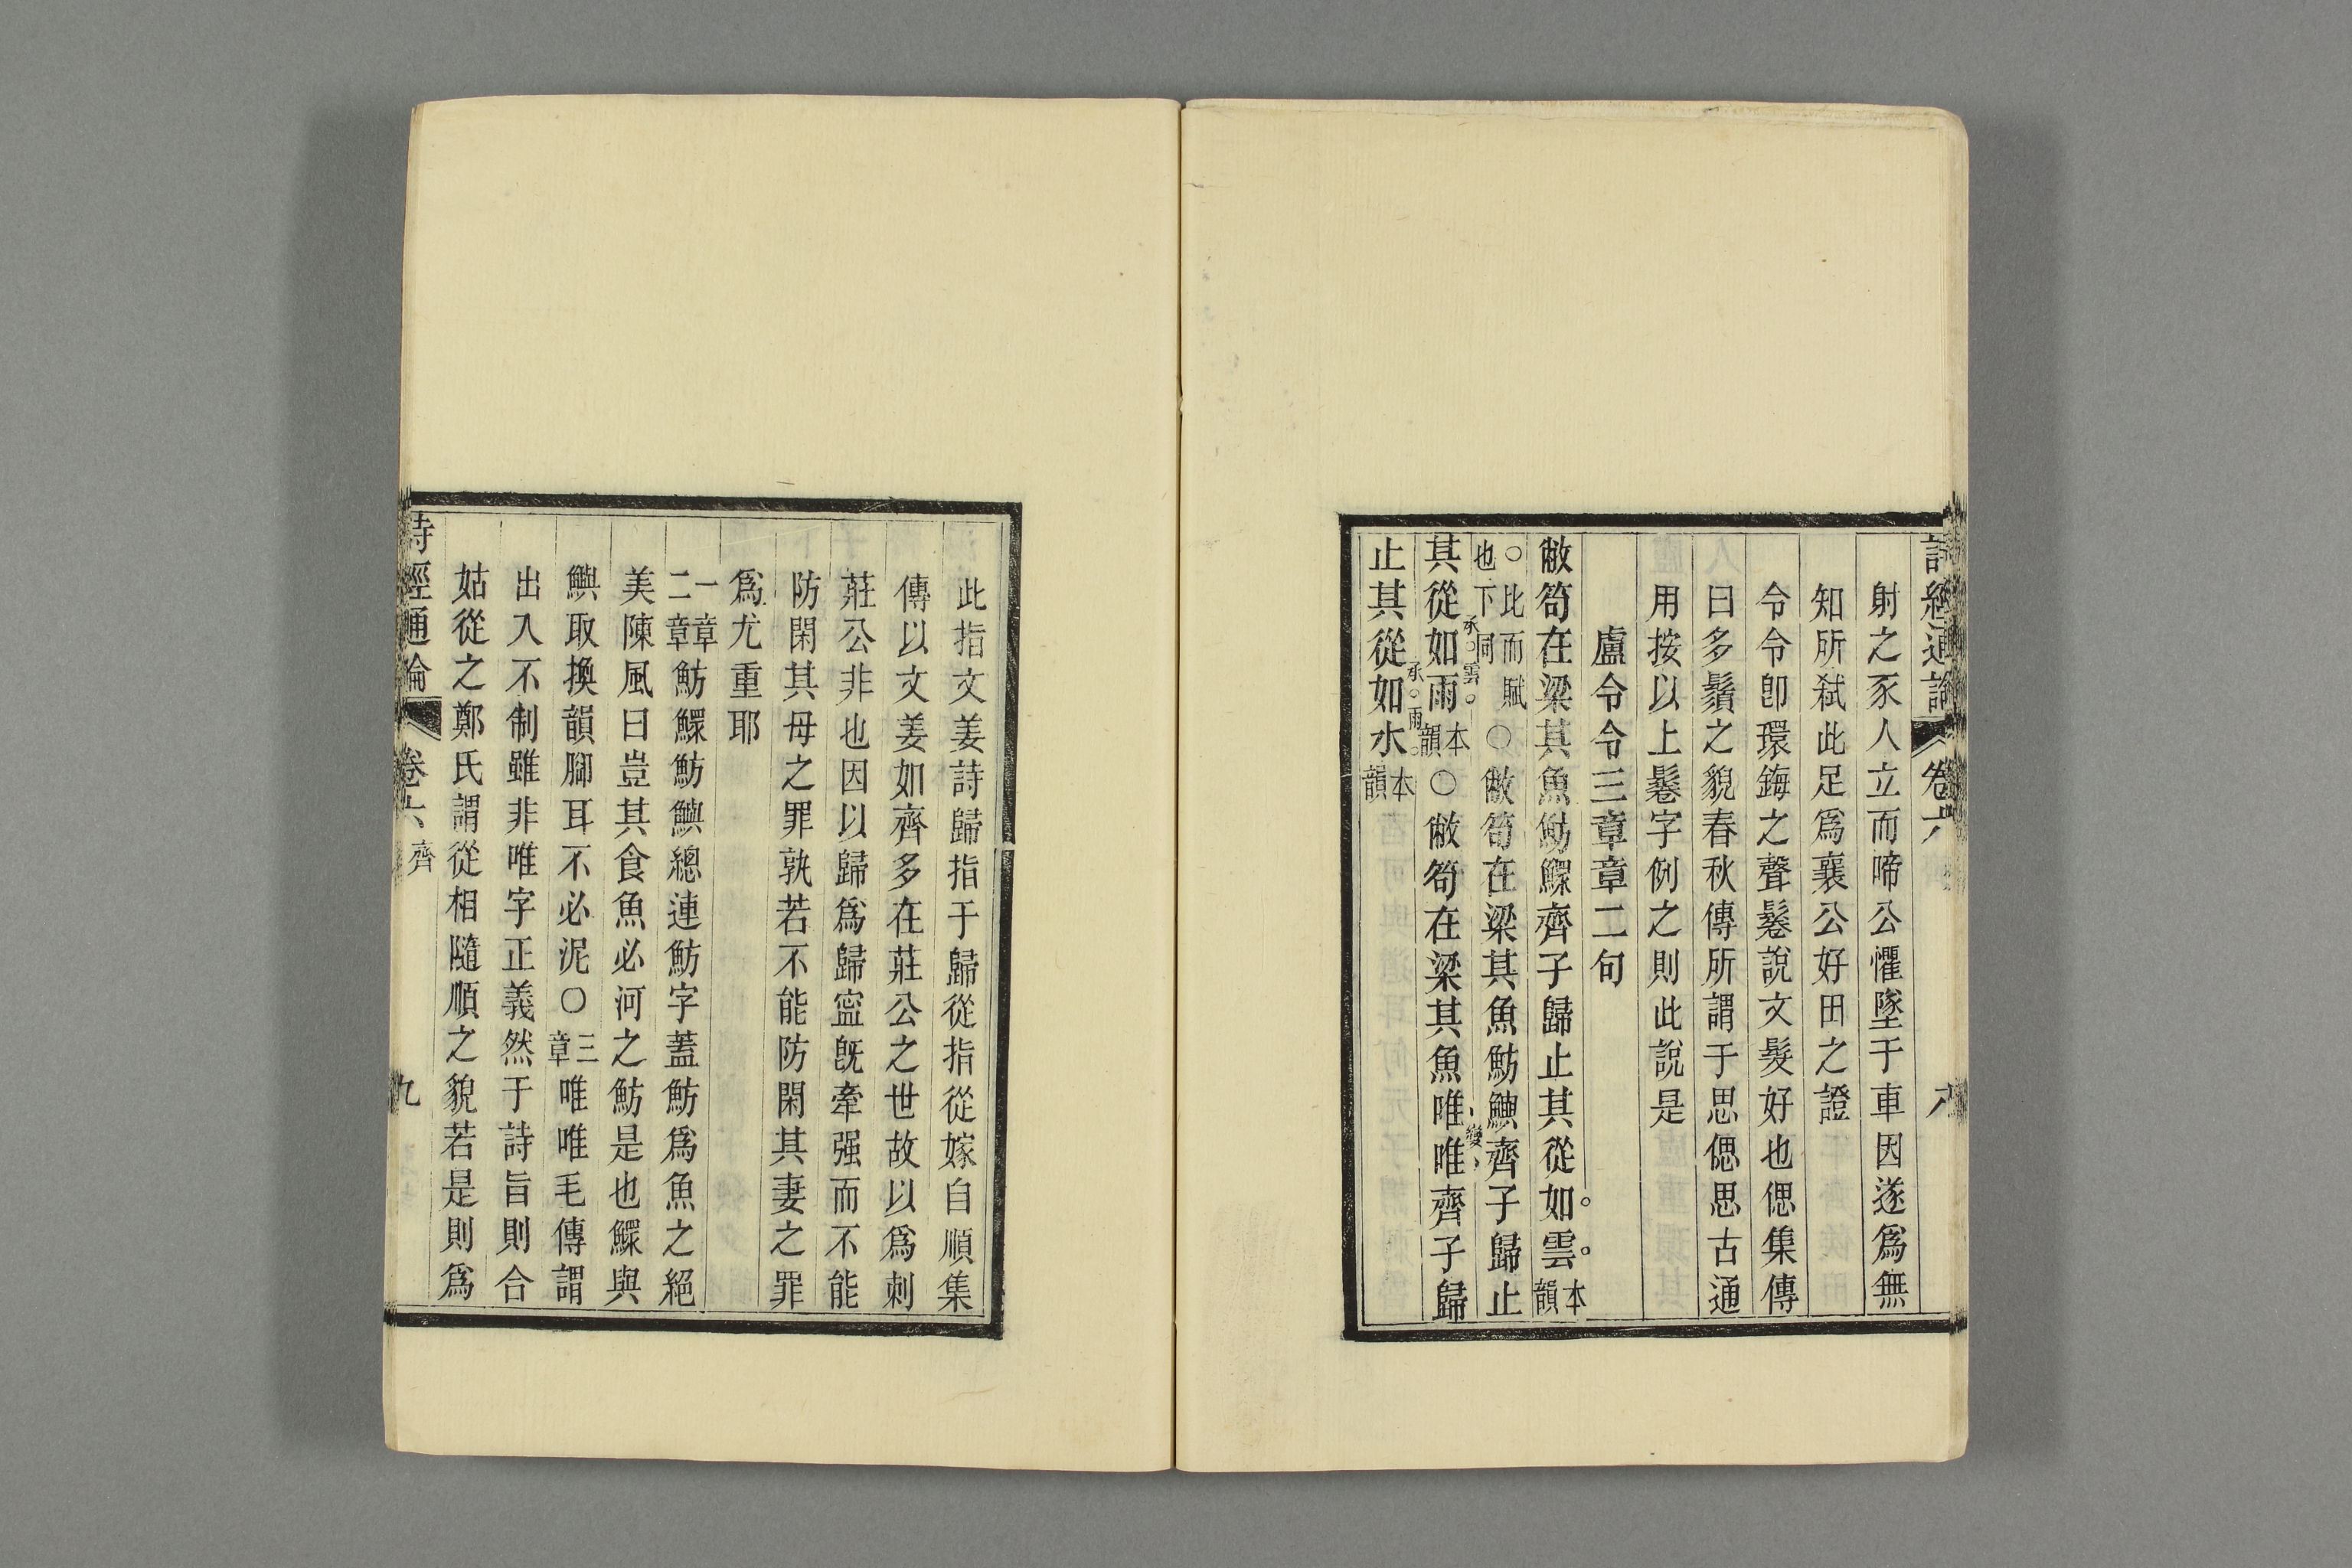 詩經通論 卷六 八
射之豕人立而啼公懼墜于車因遂爲無
知所弑此足爲襄公好田之證
令令卽環鋂之聲鬈說文髮好也偲集傳
曰多鬚之貌春秋傳所謂于思偲思古通
用按以上鬈字例之則此說是
盧令令三章章二句
敝笱在梁其魚魴鰥齊子歸止其從如雲本韻
○比而賦也下同○敝笱在梁其魚魴鱮齊子歸止
承雲
其從如雨本韻○敝笱在梁其魚唯唯齊子歸
變
承雨
止其從如水本韻
此指文姜詩歸指于歸從指從嫁自順集
傳以文姜如齊多在莊公之世故以爲刺
莊公非也因以歸爲歸寍旣牽强而不能
防閑其母之罪孰若不能防閑其妻之罪
爲尤重耶
一章二章魴鰥魴鱮總連魴字蓋魴爲魚之絕
美陳風曰豈其食魚必河之魴是也鰥與
鱮取換韻腳耳不必泥○三章唯唯毛傳謂
出入不制雖非唯字正義然于詩旨則合
姑從之鄭氏謂從相隨順之貌若是則爲
詩經通論 卷六 齊 九